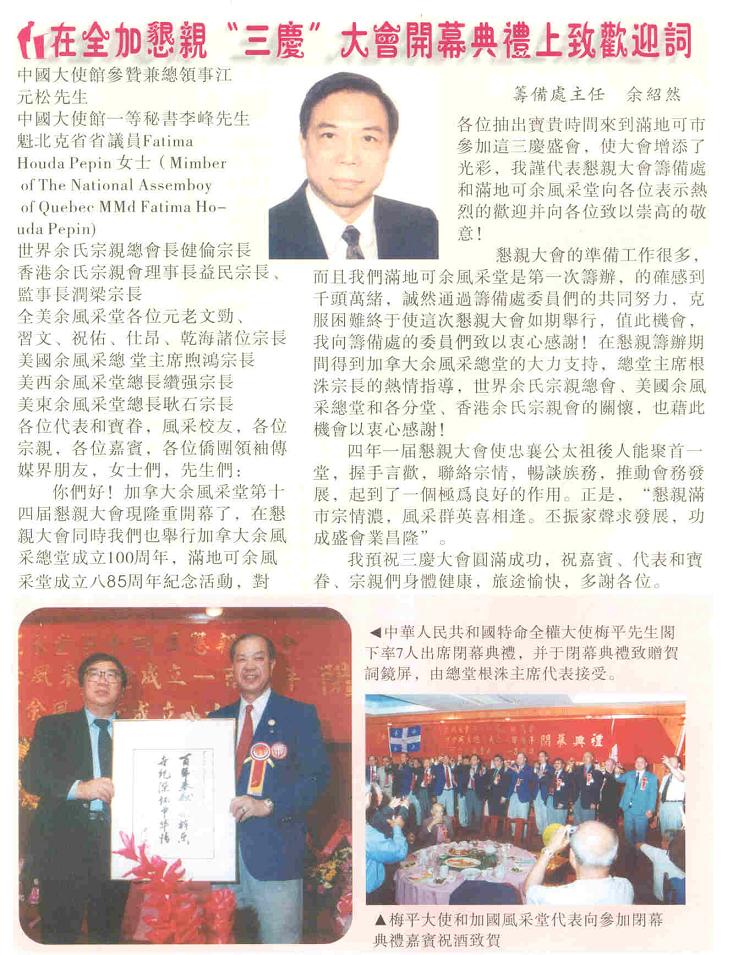 在全加懇親“三慶”大會開幕典禮上致歡迎詞
中國大使館參贊兼總領事江
元松先生
中國大使館一等秘書李峰先生
魁北克省省議員Fatima
Houda Pepin 女士（Mimber
of The National Assemboy
of Quebec MMd Fatima Ho-
uda Pepin)
世界余氏宗親總會長健倫宗長
香港余氏宗親會理事長益民宗長、
監事長潤梁宗長
全美余風采堂各位元老文勁、
習文、祝佑、仕昂、乾海諸位宗長
美國余風采總 堂主席煦鴻宗長
美西余風采堂總長纘强宗長
美東余風采堂總長耿石宗長
各位代表和寶眷，風采校友，各位
宗親，各位嘉賓，各位僑團領袖傳
媒界朋友，女士們，先生們：
你們好！加拿大余風采堂第十
四届懇親大會現隆重開幕了，在懇
親大會同時我們也舉行加拿大余風
采總堂成立100周年，滿地可余風
采堂成立八85周年紀念活動，對
籌備處主任 余紹然
各位抽出寶貴時間來到滿地可市
參加這三慶盛會，使大會增添了
光彩，我謹代表懇親大會籌備處
和滿地可余風采堂向各位表示熱
烈的歡迎并向各位致以崇高的敬
意！
懇親大會的準備工作很多，
而且我們滿地可余風采堂是第一次籌辦，的確感到
千頭萬緒，誠然通過籌備處委員們的共同努力，克
服困難終于使這次懇親大會如期舉行，值此機會，
我向籌備處的委員們致以衷心感謝！在懇親籌辦期
間得到加拿大余風采總堂的大力支持，總堂主席根
洙宗長的熱情指導，世界余氏宗親總會、美國余風
采總堂和各分堂、香港余氏宗親會的關懷，也藉此
機會以衷心感謝！
四年一届懇親大會使忠襄公太祖後人能聚首一
堂，握手言歡，聯絡宗情，暢談族務，推動會務發
展，起到了一個極爲良好的作用。正是，“懇親滿
市宗情濃，風采群英喜相逢。丕振家聲求發展，功
成盛會業昌隆”。
我預祝三慶大會圓滿成功，祝嘉賓、代表和寶
眷、宗親們身體健康，旅途愉快，多謝各位。
◀中華人民共和國特命全權大使梅平先生閣
下率7人出席閉幕典禮，并于閉幕典禮致贈賀
詞鏡屏，由總堂根洙主席代表接受。
風采堂成立一百
成立八
閉幕典禮
▲梅平大使和加國風采堂代表向參加閉幕
典禮嘉賓祝酒致賀